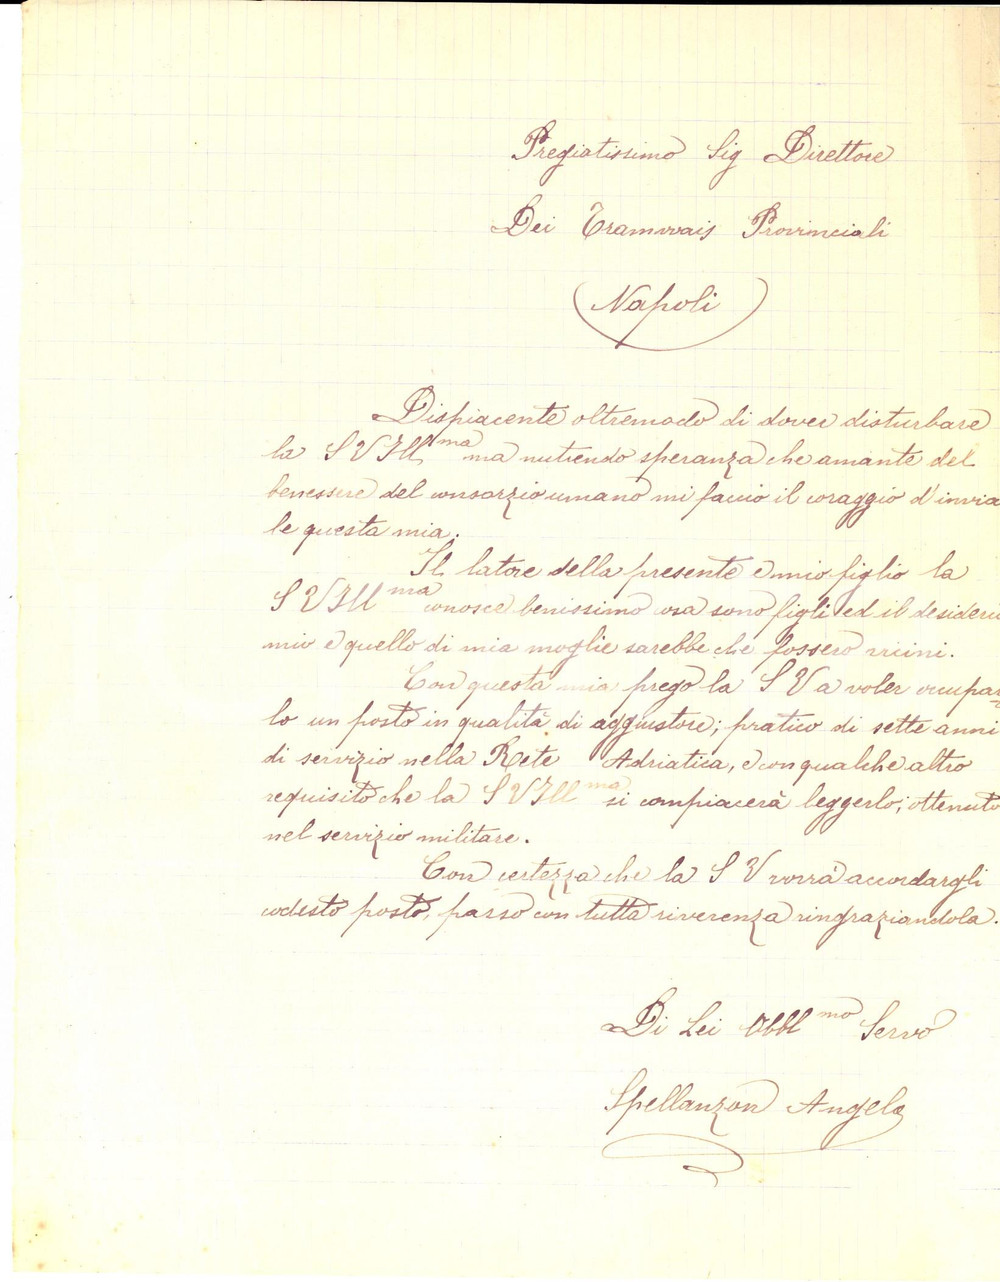 Pregiatissimo Sig Direttore
Dei Tramvvais Provinciali
Napoli
Dispiacente oltremodo di dover disturbare
la S V Ill ma ma nutrendo speranza che amante del
benessere del consorzio umano mi faccio il coraggio d'invia
le questa mia.
Il latore della presente è mio figlio la
S V Ill ma conosce benissimo cosa sono figli ed il desideri
mio e quello di mia moglie sarebbe che fossero vicini.
Con questa mia prego la S V a voler occupar=
lo un posto in qualità di aggiustore; pratico di sette anni
di servizio nella Rete Adriatica, e con qualche altro
requisito che la S V Ill ma si compiacerà leggerlo; ottenuto
nel servizio militare.
Con certezza che la S V vorrà accordargli
codesto posto, passo con tutta riverenza ringraziandola.
Di Lei Obbl mo Servo
Spellanzon Angelo